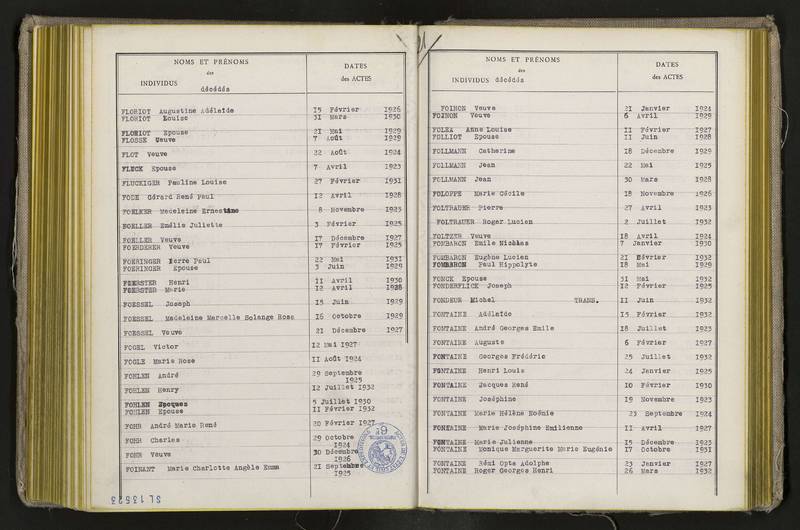 NOMS ET PRÉNOMS
des
INDIVIDUS décédés
DATES
des ACTES
FLORIOT Augustine Adélaïde 15 Février 1926
FLORIOT Louise 31 Mars 1930
FLORIOT Epouse 21 Mai 1929
FLOSSE Veuve 7 Août 1929
FLOT Veuve 22 Août 1924
FLUCK Epouse 7 Avril 1923
FLUCKIGER Pauline Louise 27 Février 1931
FODE Gérard René Paul 12 Avril 1928
FOELKER Madeleine Ernestine 8 Novembre 1923
FOELLER Emélie Juliette 3 Février 1925
FOELLER Veuve 17 Décembre 1927
FOERDERER Veuve 17 Février 1925
FOERINGER Pierre Paul 22 Mai 1931
FOERINGER Epouse 3 Juin 1929
FOERSTER Henri 11 Avril 1930
FOERSTER Marie 12 Avril 1928
FOESSEL Joseph 15 Juin 1929
FOESSEL Madeleine Marcelle Solange Rose 16 Octobre 1929
FOESSEL Veuve 21 Décembre 1927
FOGEL Victor 12 Mai 1927
FOGLE Marie Rose 11 Août 1924
FOHLEN André 29 Septembre
1925
FOHLEN Henry 12 Juillet 1932
FOHLEN Epouse 5 Juillet 1930
FOHLEN Epouse 11 Février 1932
FOHR André Marie René 20 Février 1927
FOHR Charles 29 Octobre
1924
FOHR Veuve 30 Décembre
1926
FOINANT Marie Charlotte Angèle Emma 21 Septembre
1925
SL 13523
21
NOMS ET PRÉNOMS
des
INDIVIDUS décédés
DATES
des ACTES
FOINON Veuve 21 Janvier 1924
FOINON Veuve 6 Avril 1929
FOLEA Anne Louise 11 Février 1927
FOLLIOT Epouse 11 Juin 1928
FOLLMANN Catherine 18 Décembre 1929
FOLLMANN Jean 22 Mai 1925
FOLLMANN Jean 30 Mars 1928
FOLOPPE Marie Cécile 18 Novembre 1926
FOLTRAUER Pierre 27 Avril 1923
FOLTRAUER Roger Lucien 2 Juillet 1932
FOLTZER Veuve 18 Avril 1924
FOMBARON Emile Nicolas 7 Janvier 1930
FOMBARON Eugène Lucien 21 Février 1932
FOMBARON Paul Hippolyte 18 Mai 1929
FONCK Epouse 31 Mai 1932
FONDERFLICK Joseph 12 Février 1925
FONDEUR Michel TRANS. 11 Juin 1932
FONTAINE Adélaïde 15 Février 1932
FONTAINE André Georges Emile 18 Juillet 1923
FONTAINE Auguste 6 Février 1927
FONTAINE Georges Frédéric 25 Juillet 1932
FONTAINE Henri Louis 24 Janvier 1925
FONTAINE Jacques René 10 Février 1930
FONTAINE Joséphine 19 Novembre 1923
FONTAINE Marie Hélène Noémie 23 Septembre 1924
FONTAINE Marie Joséphine Emilienne 11 Avril 1927
FONTAINE Marie Julienne 15 Décembre 1923
FONTAINE Monique Marguerite Marie Eugénie 17 Octobre 1931
FONTAINE Rémi Opte Adolphe 23 Janvier 1927
FONTAINE Roger Georges Henri 26 Mars 1932